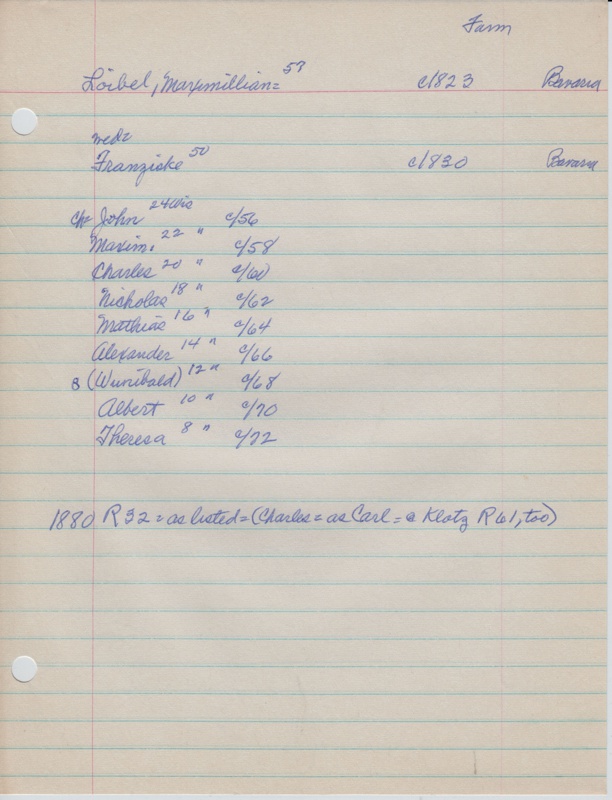 Farm
Loibel, Maximillian = 57 c/1823 Bavaria
wede
Franziske 50 c/1830 Bavaria
ch= John 24 Wis c/56
Maxim. 22 " c/58
Charles 20 " c/60
Nicholas 18 " c/62
Mathias 16 " c/64
Alexander 14 " c/66
8 (Wunibald) 12 " c/68
Albert 10 " c/70
Theresa 8 " c/72
1880 R 32 = as listed = (Charles = as Carl = @ Klotz R 61, too)